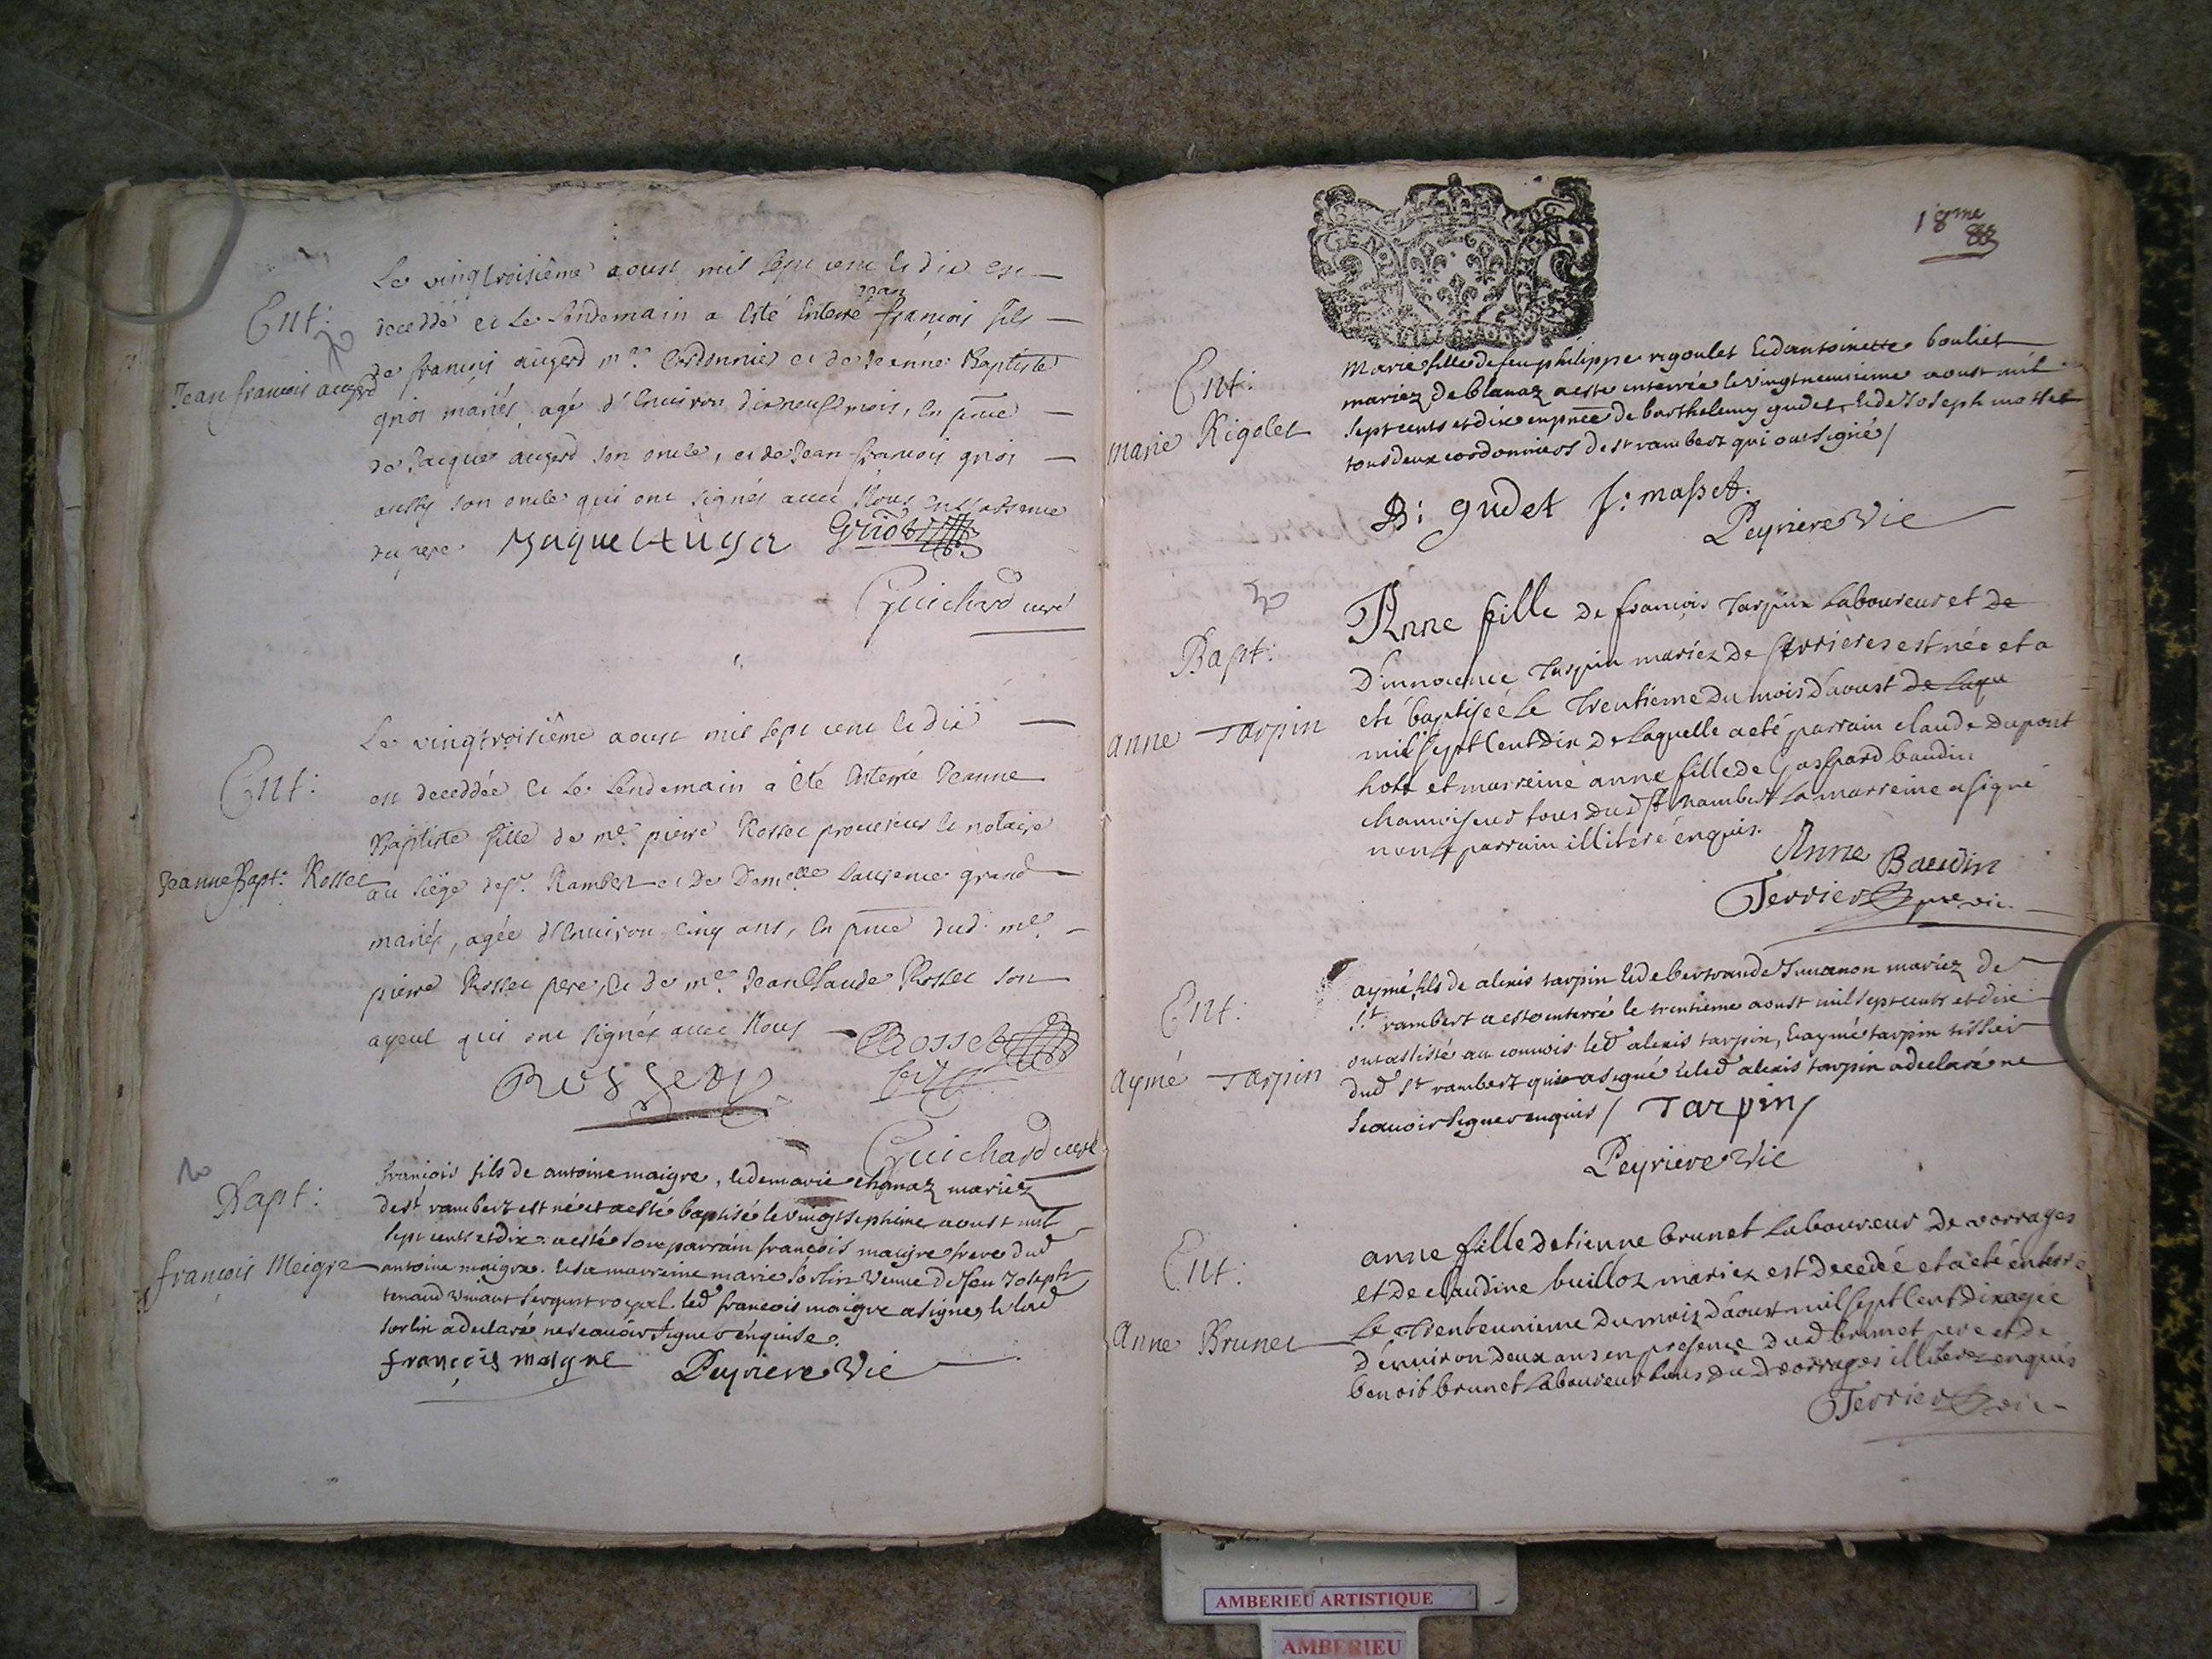 Ent:
Jean françois augerd
Le vingtroisième aoust mil sept cent et dix est
deceddé et Le Lendemain a esté Enterré jean françois fils
de françois augerd me Cordonnier et de Jeanne Baptiste
griot mariés, agé d'Environ dixneuf mois, En pnce
de Jacques augerd son oncle, et de Jean françois griot
aussy son oncle qui ont signés avec Nous
du pere. Jaque Augerd Griot
Guichard curé
Ent:
Jeanne Bapt: Rosset
Le vingtroisième aoust mil sept cent et dix
est deceddée et Le Lendemain a été Enterrée Jeanne
Baptiste fille de me. pierre Rosset procureur et notaire
au siège de st. Rambert et De Demelle Laurence grand
mariés, agée d'Environ cinq ans, En pnce dud. me.
pierre Rosset pere, et de me. Jean Claude Rosset son
ayeul qui ont signés avec Nous Rosset
Guichard curé
Bapt:
françois Meigre
françois fils de antoine maigre, et de marie chanaz mariez
de st rambert est né et a esté baptisé le vingt septieme aoust mil
sept cents et dix: a esté son parrain francois maigre frere dud
antoine maigre. et sa marreine marie sorlin veuve de feu Joseph
tenaud vivant sergent royal. led francois maigre a signé, et lad
sorlin a declaré ne scavoir signer enquise.
françois maigre Peyriere Vic
18me
GEN
Ent:
marie Rigolet
Marie fille de feu philippe rigoulet et d'antoinette bouliet
mariez de blanaz a esté enterrée le vingt neuvieme aoust mil
sept cents et dix en pnce de barthelemy gudet, et de Joseph masset
tous deux cordonniers de st rambert qui ont signé /
B: gudet J: masset.
Peyriere Vic
Bapt:
anne Tarpin
Anne fille de françois Tarpin Laboureur et de
D'innocence Tarpin mariez de serrieres est née et a
eté baptisée Le Trentieme Du mois d'aoust de Laqu
mil sept Cent Dix De Laquelle a eté parrain claude Dupont
hote et marreine anne fille de Gaspard baudin
chamoiseur tous Dud st Rambert La marreine a signé
non Le parrain illiteré enquis.
Anne Baudin
Terrier pre vic.
Ent:
aymé Tarpin
aymé fils de alexis tarpin et de bertrande Jumanon mariez de
St rambert a esté enterré le trentieme aoust mil sept cents et dix
ont assisté au convois led alexis tarpin, et aymé tarpin tissier
dud st rambert qui a signé et led alexis tarpin a declaré ne
scavoir signer enquis / Tarpin /
Peyriere Vic
Ent:
Anne Brunet
anne fille d'etienne brunet Laboureur De vorrages
et De claudine builloz mariez est Decedée et a eté enterré
Le Trenteunieme Du mois D'aoust mil sept Cent Dix agée
D'environ Deux ans en presence Dud brunet pere et de
benoit brunet Laboureur tous Dud vorrages illiterez enquis
Terrier vic
AMBERIEU ARTISTIQUE
AMBERIEU